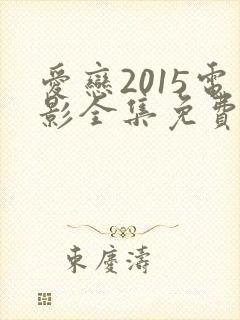 愛戀2015電
影全集免費
東慶濤